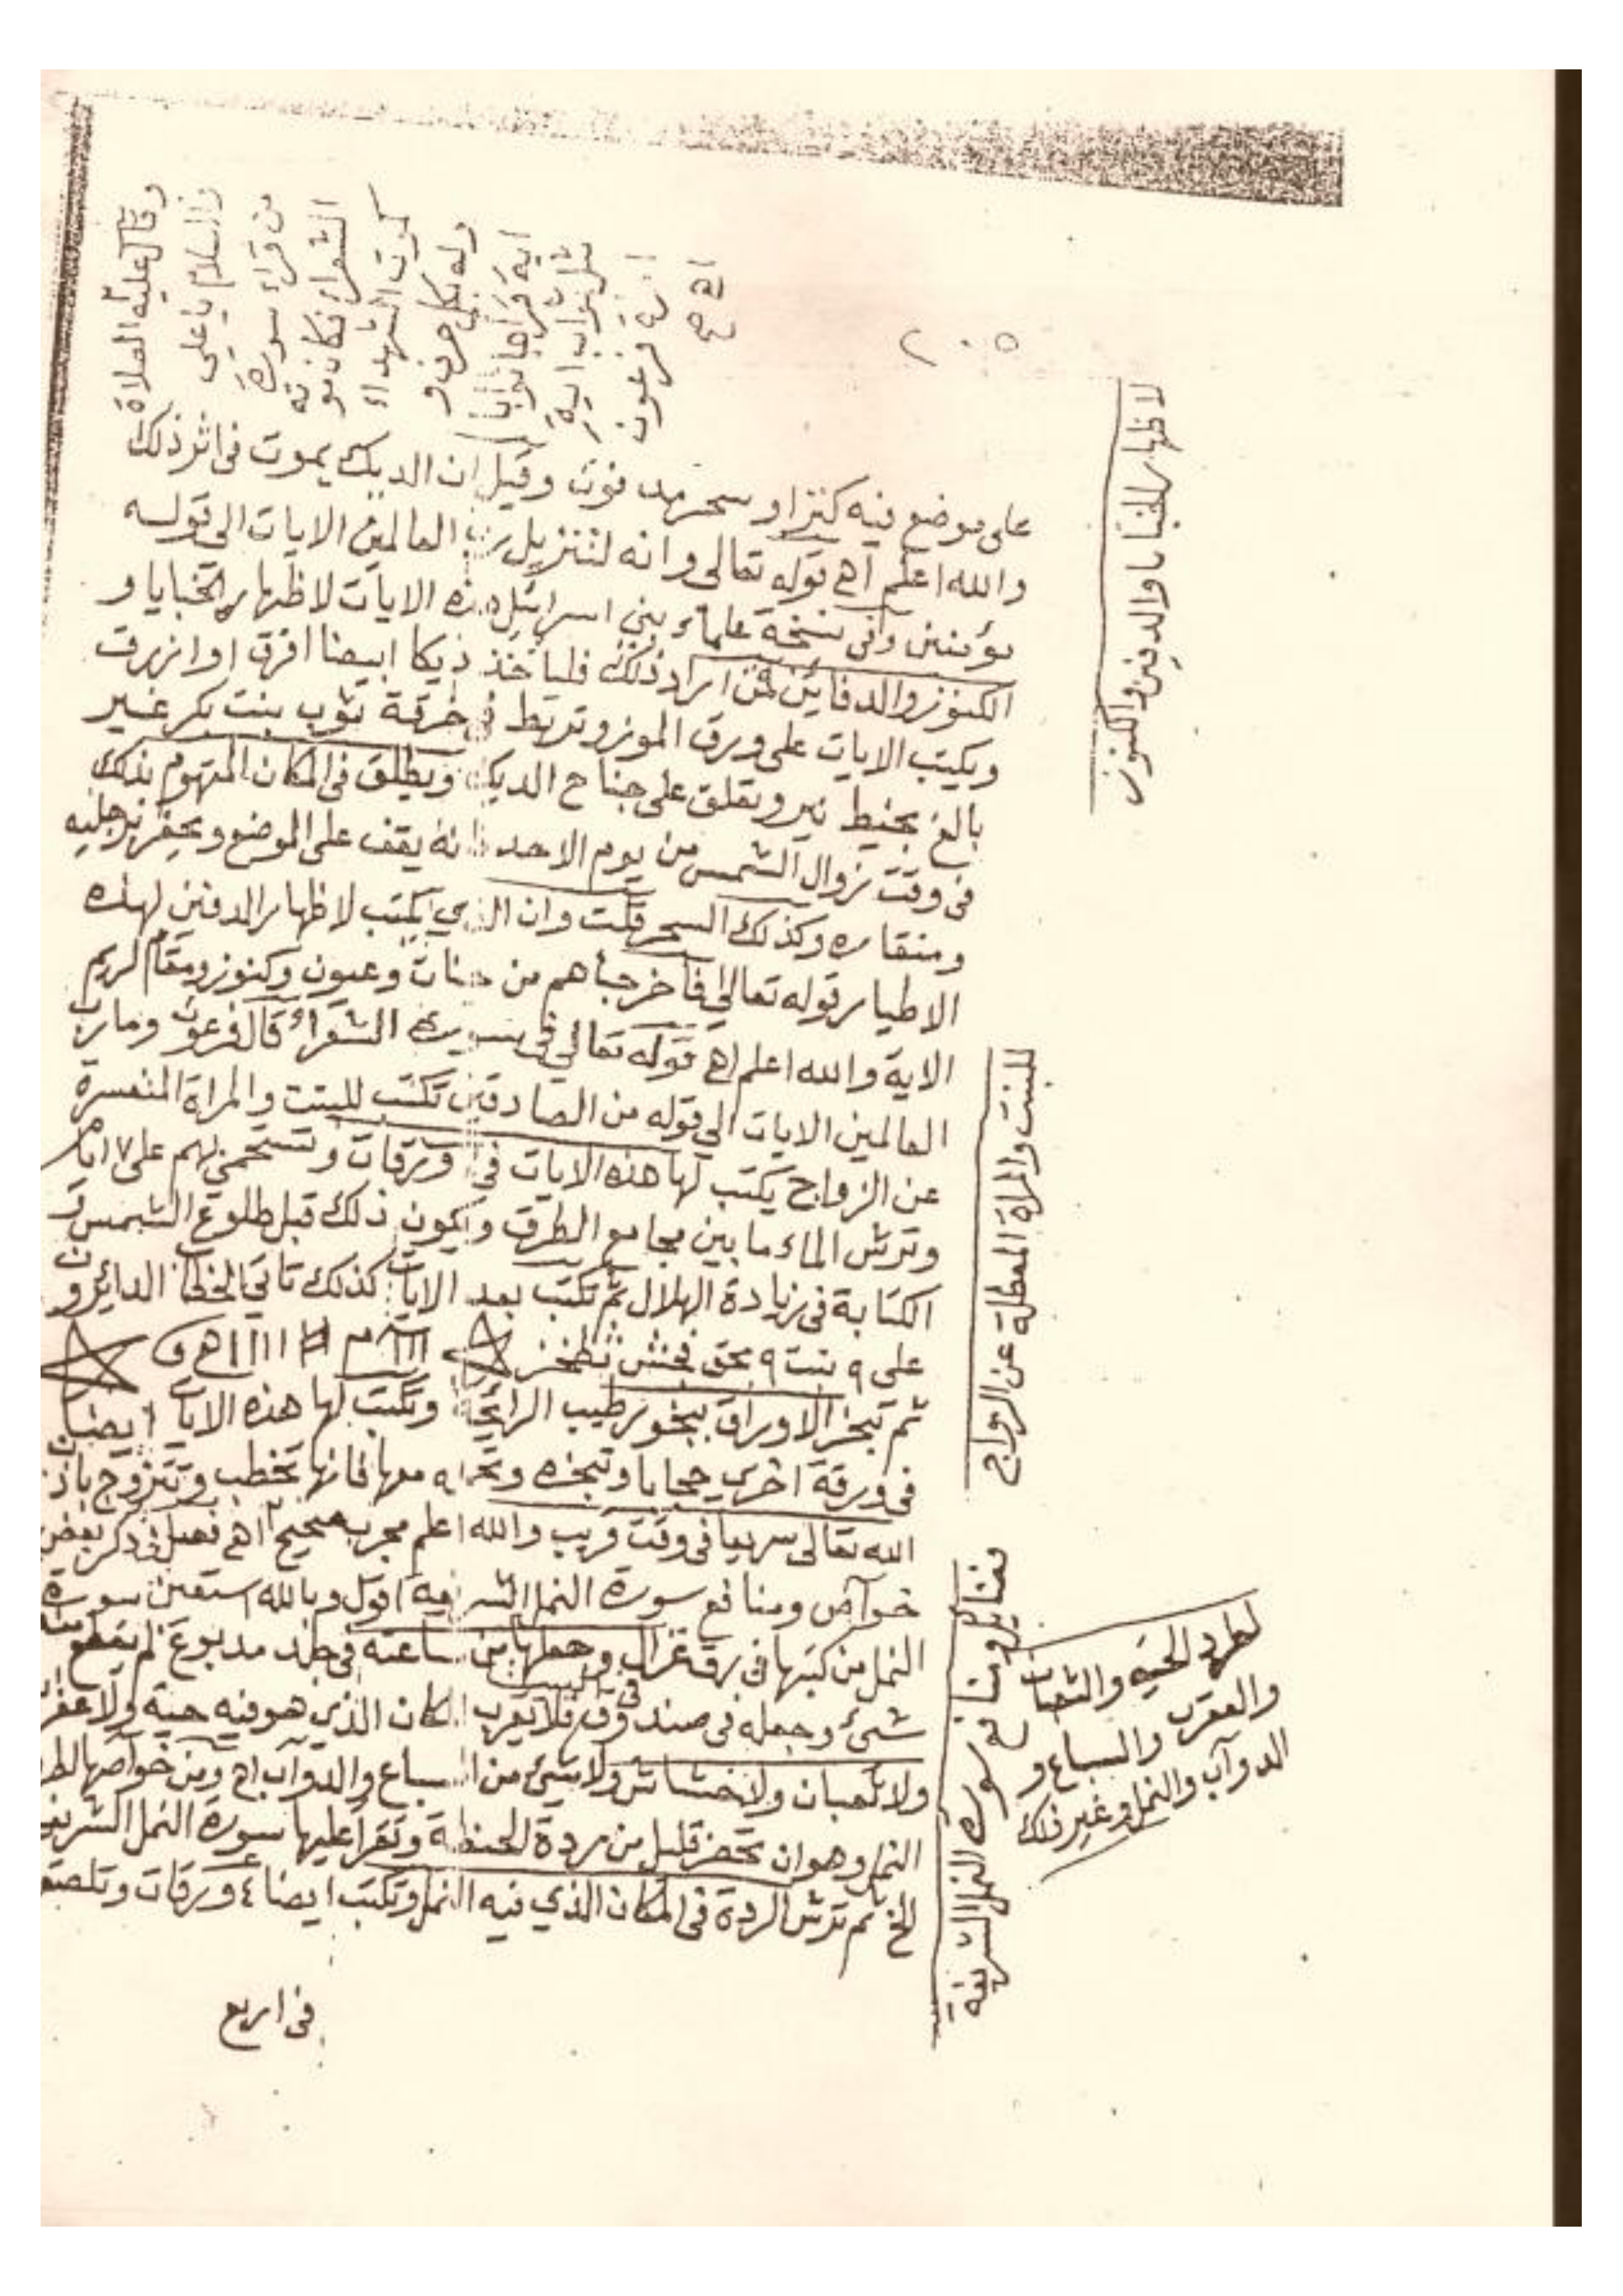 ٢٠٥
وقال عليه الصلاة
والسلام يا علي
من قراء سورة
الشعراء فكان موته
كموت الشهداء
وله بكل حرف و
اية قراها ثوابا
مثل ثواب اسية
فرعون
اه
على موضع فيه كنز او سحر مدفون وقيل ان الديك يموت في اثر ذلك
والله اعلم اه قوله تعالى وانه لتنزيل رب العالمين الايات الى قوله
مؤمنين وفي نسخة علماء بني اسرائيل هذه الايات لاظهار الخبايا و
الكنوز والدفائن فمن اراد ذلك فلياخذ ديكا ابيضا افرق او ازرق
ويكتب الايات على ورق الموز وتربط في خرقة ثوب بنت بكر غير
بالغ بخيط نير وتعلق على جناح الديك ويطلق في المكان المتهوم بذلك
في وقت زوال الشمس من يوم الاحد فانه يقف على الموضع ويحفر برجليه
ومنقاره وكذلك السحر قلت وان الذي يكتب لاظهار الدفين لهذه
الاطيار قوله تعالى فأخرجناهم من جنات وعيون وكنوز ومقام كريم
الاية والله اعلم اه قوله تعالى في سورة الشعراء قال فرعون وما رب
العالمين الايات الى قوله من الصادقين تكتب للبنت والمراة المتعسرة
عن الزواج يكتب لها هذه الايات في ورقات وتستحمي بهم على ٧ ايام
وترش الماء ما بين مجامع الطرق ويكون ذلك قبل طلوع الشمس و
الكتابة في زيادة الهلال ثم تكتب بعد الايات كذلك تاتي الخطاب الدائرون
على ٩ بنت ٩ بحق فجش ثظخز
ثم تبخر الاوراق ببخور طيب الرائحة وتكتب لها هذه الايات ايضا
في ورقة اخرى حجابا وتبخره وتحمله معها فانها تخطب وتتزوج باذن
الله تعالى سريعا في وقت قريب والله اعلم مجرب صحيح اه فصل في ذكر بعض
خواص ومنافع سورة النمل الشريفة اقول وبالله استعين سورة
النمل من كتبها في رق غزال وجعلها من ساعته في جلد مدبوغ لم يقطع منه
شئ وجعله في صندوق في البيت فلا يقرب المكان الذي هو فيه حية ولا عقرب
ولا ثعبان ولا خشاش ولا شئ من السباع والدواب اه ومن خواصها لطرد
النمل وهو ان تحضر قليل من ردة الحنطة وتقرا عليها سورة النمل الشريفة
الخ ثم ترش الردة في المكان الذي فيه النمل وتكتب ايضا ٤ ورقات وتلصق
في اربع
لاظهار الخبايا والدفين والكنوز
للبنت والمراة المعطلة عن الزواج
فضائل ومنافع سورة النمل الشريفة
لطرد الحية والثعبان
والعقرب والسباع و
الدوآب والنمل وغير ذلك